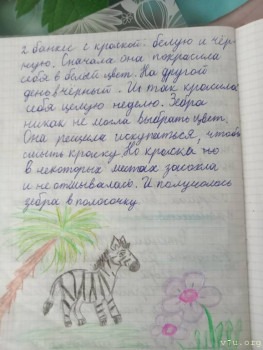 2 банки с краской: белую и чёр-
ную. Сначала она покрасила
себя в белый цвет. На другой
день в чёрный. И так красила
себя целую неделю. Зебра
никак не могла выбрать цвет.
Она решила искупаться, чтобы
смыть краску. Но краска то
в некоторых местах засохла
и не отмывалась. И получилась
зебра в полосочку
v7u.org